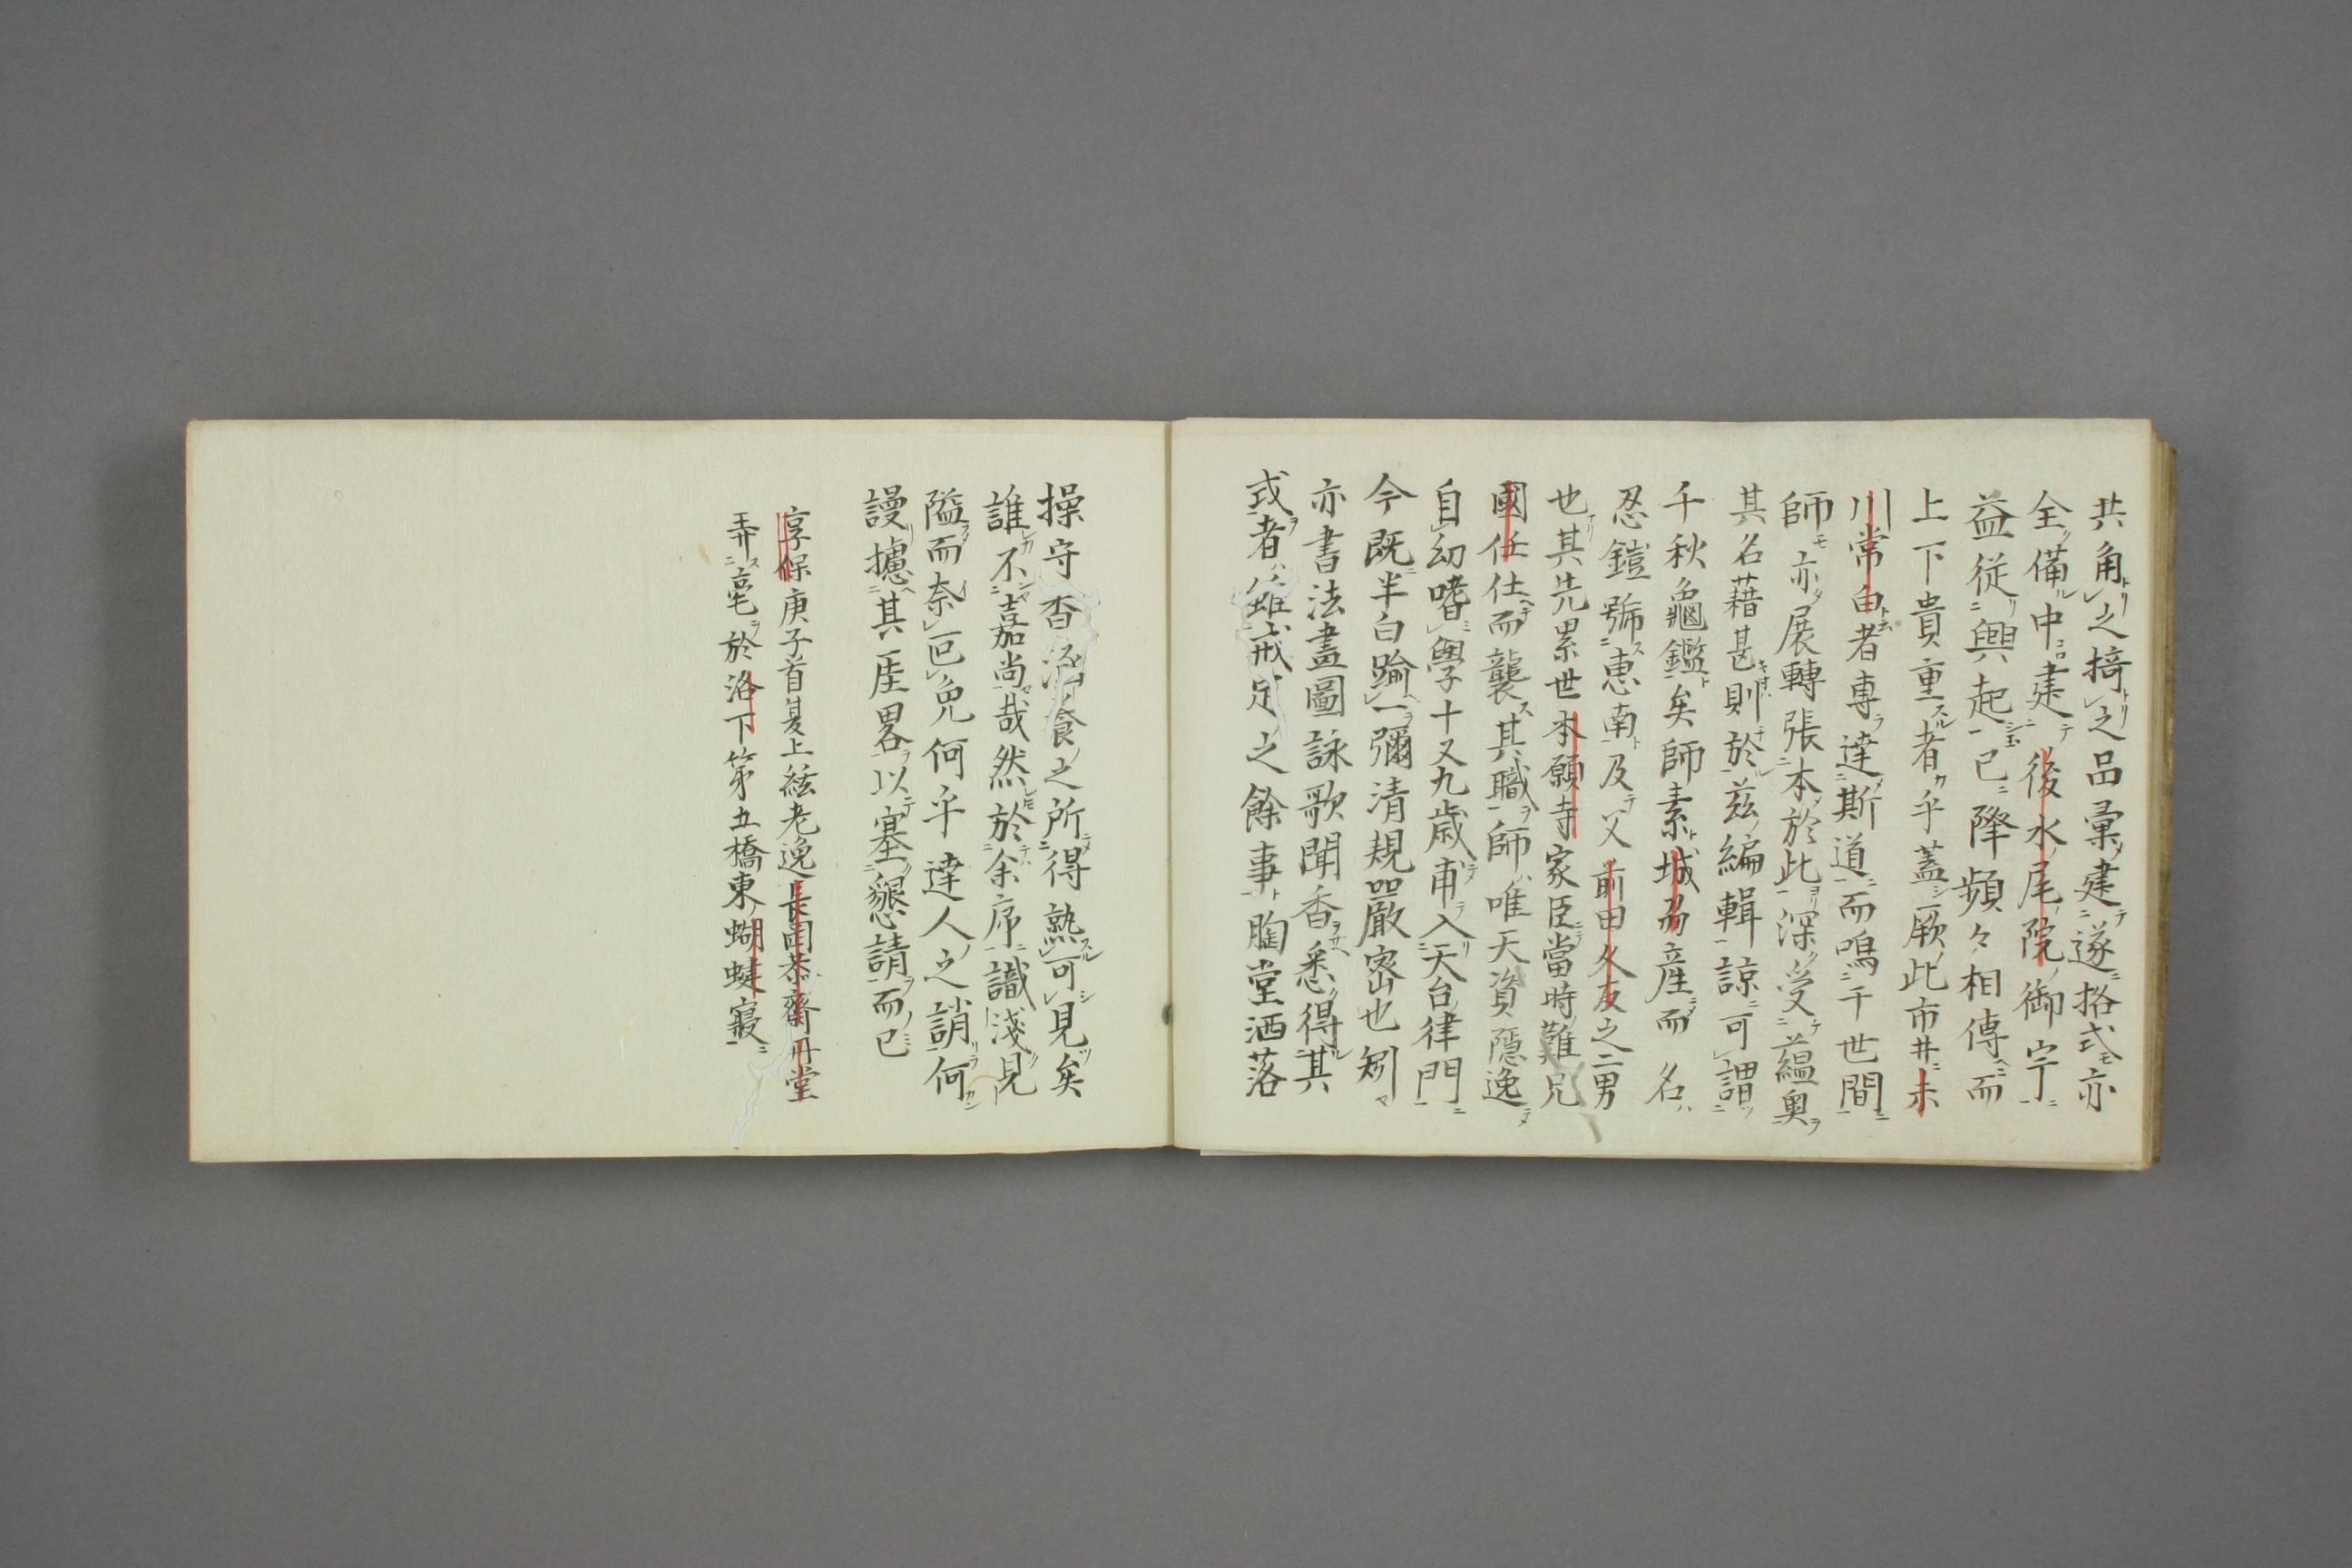 共角之掎之品彙建遂格式亦
全備中建後水尾院御宇
益従興起已降頻々相傳而
上下貴重者乎蓋厥此市井未
川常由者專達斯道而鳴于世間
師亦展轉張本於此深受蘊奥
其名藉甚則於茲編輯諒可謂
千秋龜鑑矣師素城刕産而名
忍鎧號惠南及父前田久友之二男
也其先累世本願寺家臣當時難兄
國任仕而襲其職師唯天資隱逸
自幼嗜學十又九歳甫入天台律門
今既半白踰一彌清規嚴密也矧
亦書法畫圖詠歌聞香悉得其
或者雖戒定之餘事胸堂洒落
操守香之所得熟可見矣
誰不嘉尚哉然於余序識淺見
隘而奈叵免何乎達人之誚何
謾攄其厓畧以塞懇請而已
享保庚子首夏上絃老逸長岡恭齋丹堂
弄毫於洛下第五橋東蝴蝶寢